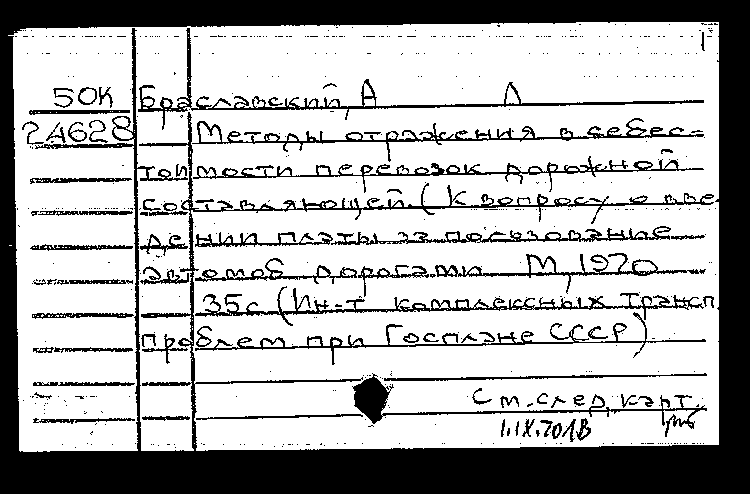 1
50К Браславский, А Л
24628 Методы отражения в себес-
тоимости перевозок дорожной
составляющей. (К вопросу о вве-
дении платы за пользование
автомоб дорогами М, 1970
35с (Ин-т комплексных трансп
проблем при Госплане СССР)
См. след. карт.
1.IX.701В